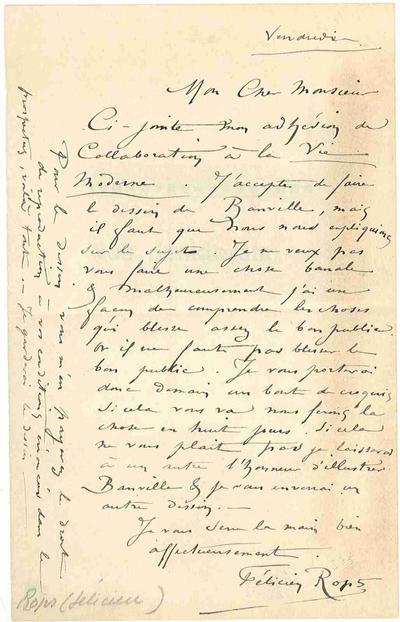 Vendredi
Mon Cher Monsieur
Ci-jointe mon adhésion de
Collaboration à la Vie
Moderne J'accepte de faire
le dessin de Banville, mais
il faut que nous nous expliquions
sur le sujet. Je ne veux pas
vous faire une chose banale
& malheureusement j'ai une
façon de comprendre les choses
qui blesse assez le bon public.
Or il ne faut pas blesser le
bon public. Je vous porterai
donc demain un bout de croquis
si cela vous va nous ferons la
chose en huit jours. Si cela
ne vous plait pas je laisserai
à un autre l'honneur d'illustrer
Banville & je vous enverrai un
autre dessin. —
Je vous serre la main bien
affectueusement
Félicien Rops
Pour le dessin vous m'en payerez le droit
de reproduction à vos conditions énoncées dans le
prospectus, voilà tout. — Je garderai le dessin. —
Rops (Félicien)